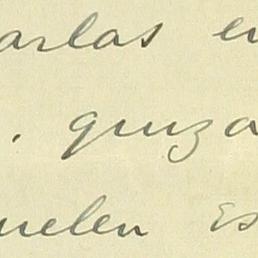 arlas en
. quiza
uelen es